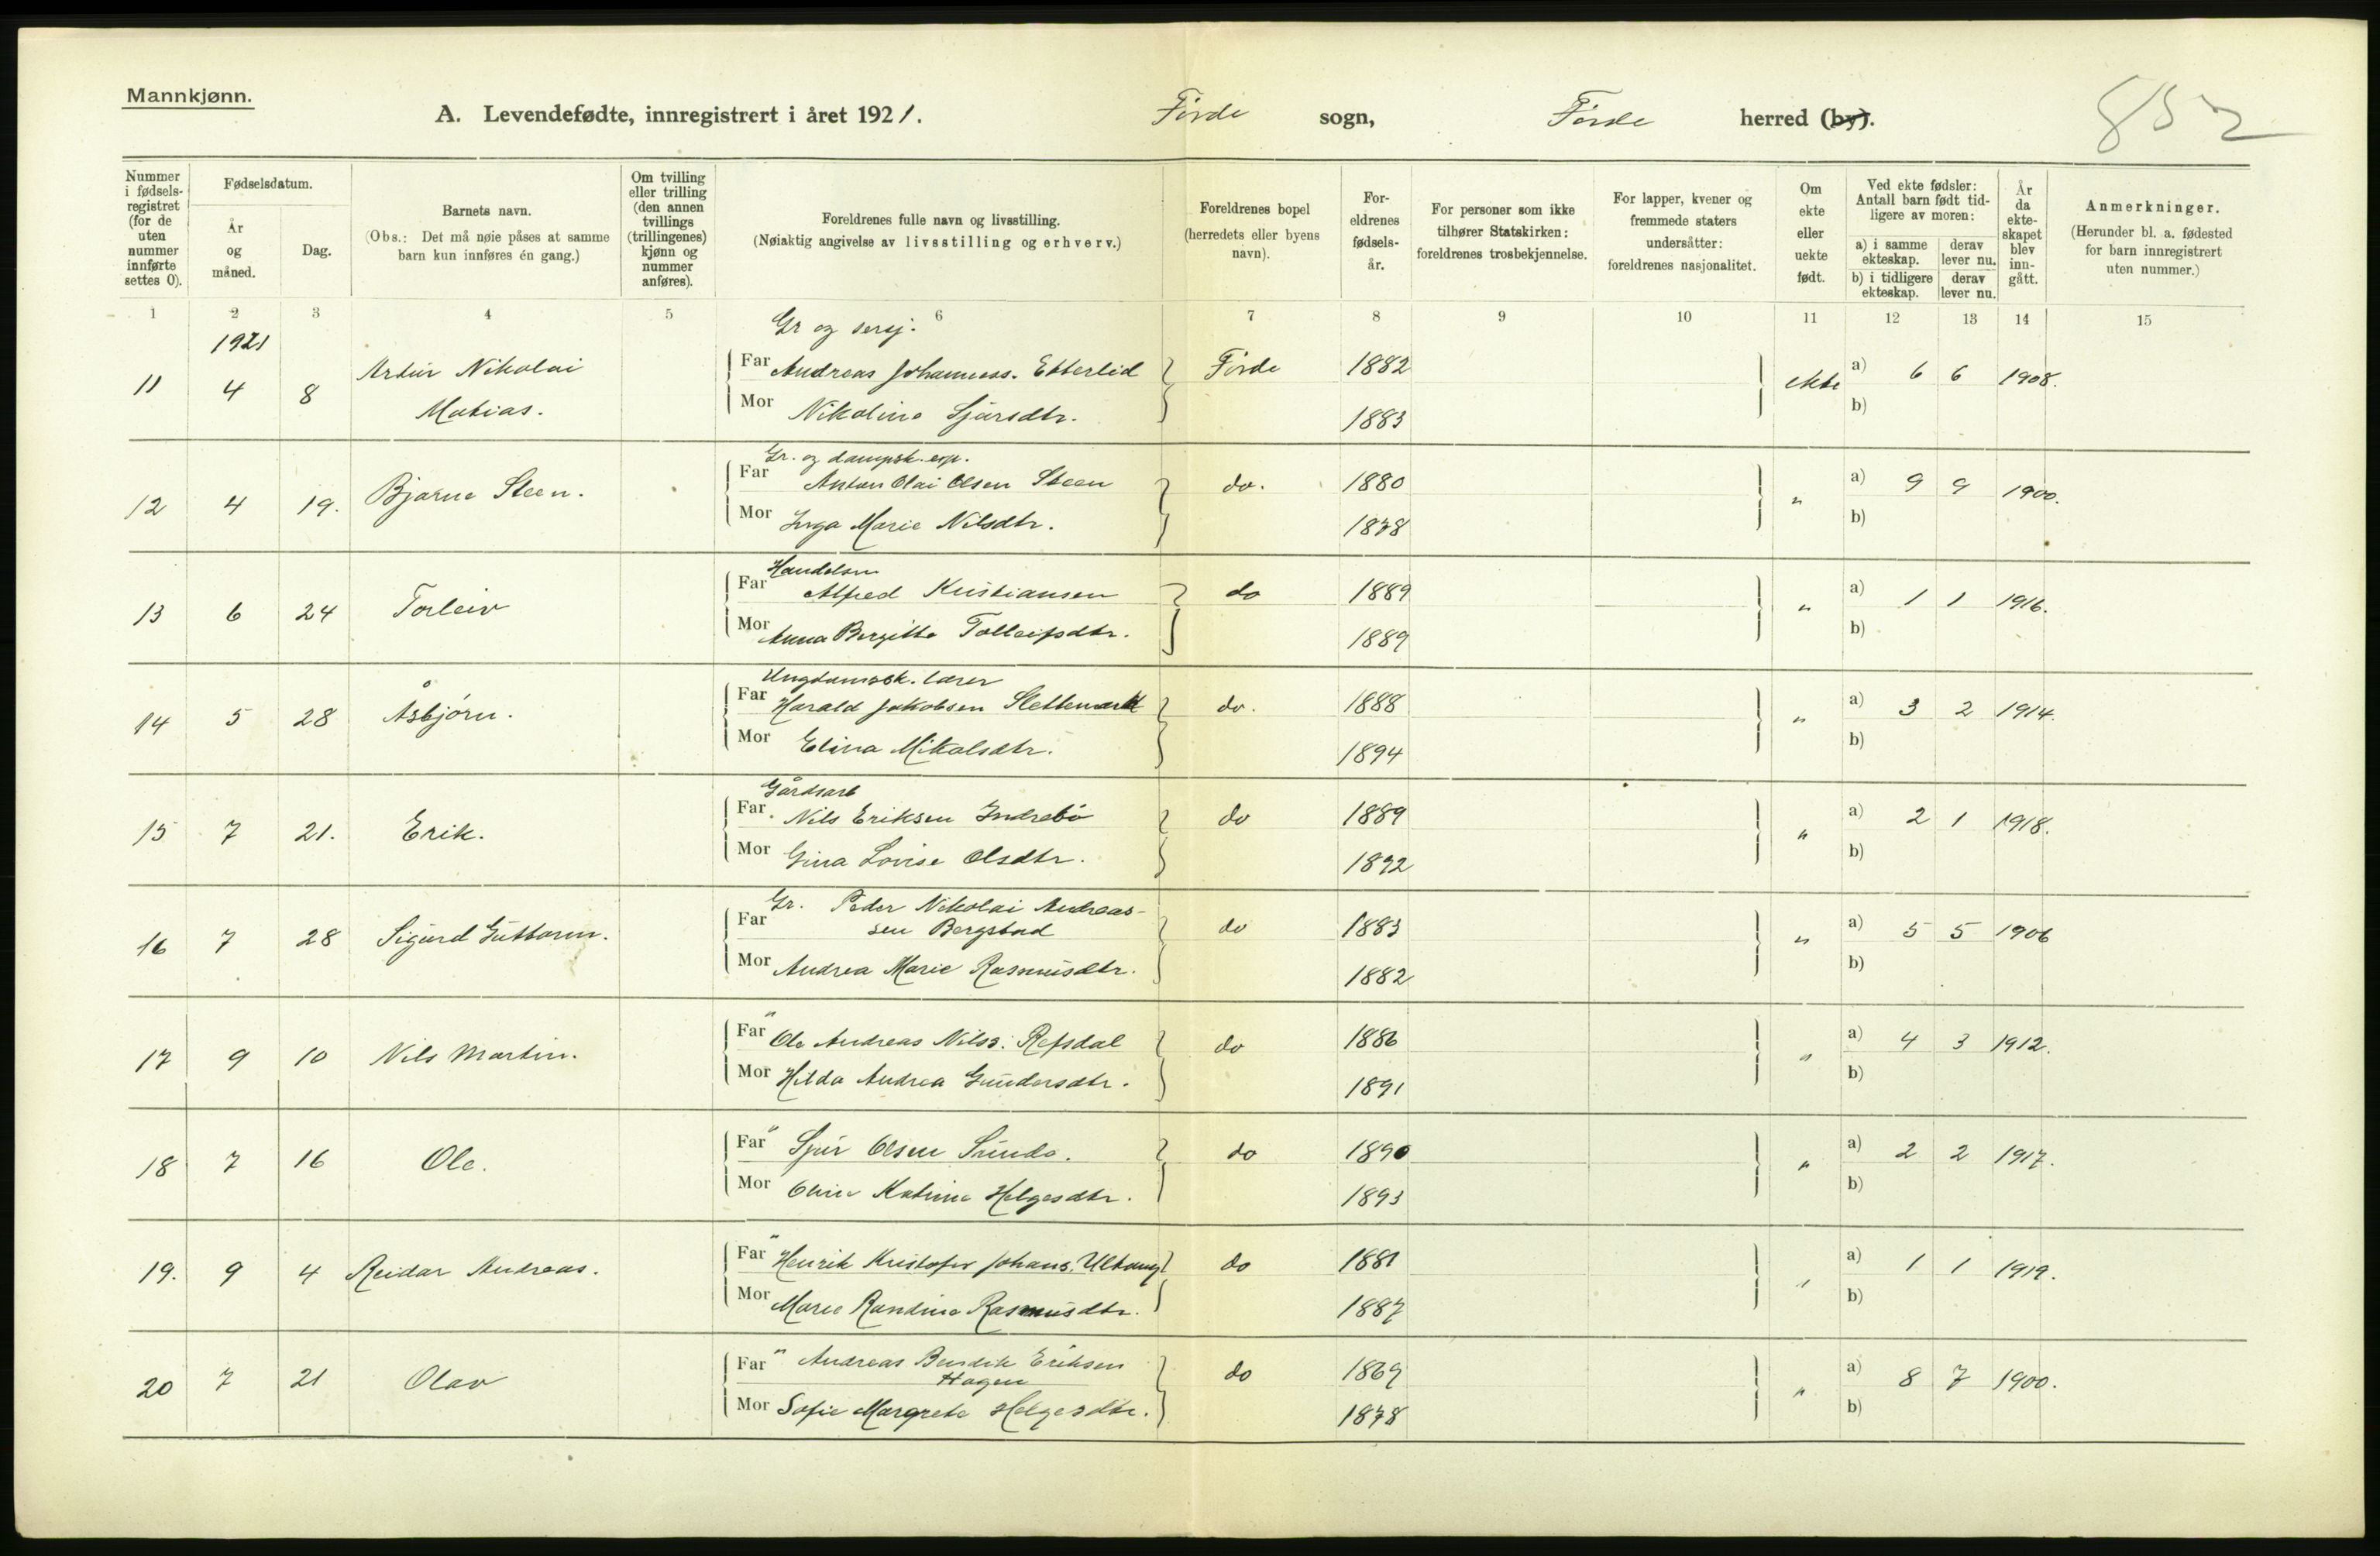 Mannkjønn.
A. Levendefødte, innregistrert i året 1921. Førde sogn, Førde herred (by). 852
Nummer i fødsels-registret (for de uten nummer innførte settes 0).
Fødselsdatum.
År og måned.
Dag.
Barnets navn.
(Obs.: Det må nøie påses at samme barn kun innføres én gang.)
Om tvilling eller trilling (den annen tvillings (trillingenes) kjønn og nummer anføres).
Foreldrenes fulle navn og livsstilling.
(Nøiaktig angivelse av livsstilling og erhverv.)
Foreldrenes bopel (herredets eller byens navn).
For-eldrenes fødsels-år.
For personer som ikke tilhører Statskirken: foreldrenes trosbekjennelse.
For lapper, kvener og fremmede staters undersåtter: foreldrenes nasjonalitet.
Om ekte eller uekte født.
Ved ekte fødsler: Antall barn født tid-ligere av moren:
a) i samme ekteskap. derav lever nu.
b) i tidligere ekteskap. derav lever nu.
År da ekte-skapet blev inn-gått.
Anmerkninger.
(Herunder bl. a. fødested for barn innregistrert uten nummer.)
1 2 3 4 5 6 7 8 9 10 11 12 13 14 15
1921 Gr og sersj.
11 4 8 Artur Nikolai Far Andreas Johanness. Etterlid Førde 1882 ekte a) 6 6 1908.
Matias. Mor Nikolina Sjursdtr. 1883 b)
Gr. og dampsk. exp.
12 4 19. Bjarne Steen. Far Anton Olai Olsen Steen do. 1880 " a) 9 9 1900.
Mor Inga Marie Nilsdtr. 1878 b)
Handelsm
13 6 24 Torleiv Far Alfred Kristiansen do 1889 " a) 1 1 1916.
Mor Anna Bergitte Tolleifsdtr. 1889 b)
Ungdomssk. lærer
14 5 28 Åsbjørn. Far Harald Jakobsen Slettemark do. 1888 " a) 3 2 1914.
Mor Elina Mikalsdtr. 1894 b)
Gårdsarb
15 7 21. Erik. Far Nils Eriksen Indrebø do 1889 " a) 2 1 1918.
Mor Gina Lovise Olsdtr. 1892 b)
Gr. Peder Nikolai Andreas-
16 7 28 Sigurd Guttorm. Far sen Bergstad do 1883 " a) 5 5 1906
Mor Andrea Marie Rasmusdtr. 1882 b)
17 9 10 Nils Martin. Far " Ole Andreas Nilss. Refsdal do 1886 " a) 4 3 1912.
Mor Hilda Andrea Gundersdtr. 1891 b)
18 7 16 Ole. Far " Sjur Olsen Sunde. do 1890 " a) 2 2 1917.
Mor Oline Katrine Helgesdtr. 1893 b)
19. 9 4 Reidar Andreas. Far " Henrik Kristofer Johans. Ultang do 1881 " a) 1 1 1919.
Mor Marie Randine Rasmusdtr. 1887 b)
20 7 21 Olav Far " Andreas Bendik Eriksen do 1869 " a) 8 7 1900.
Hagen
Mor Sofie Margrete Helgesdtr. 1878 b)